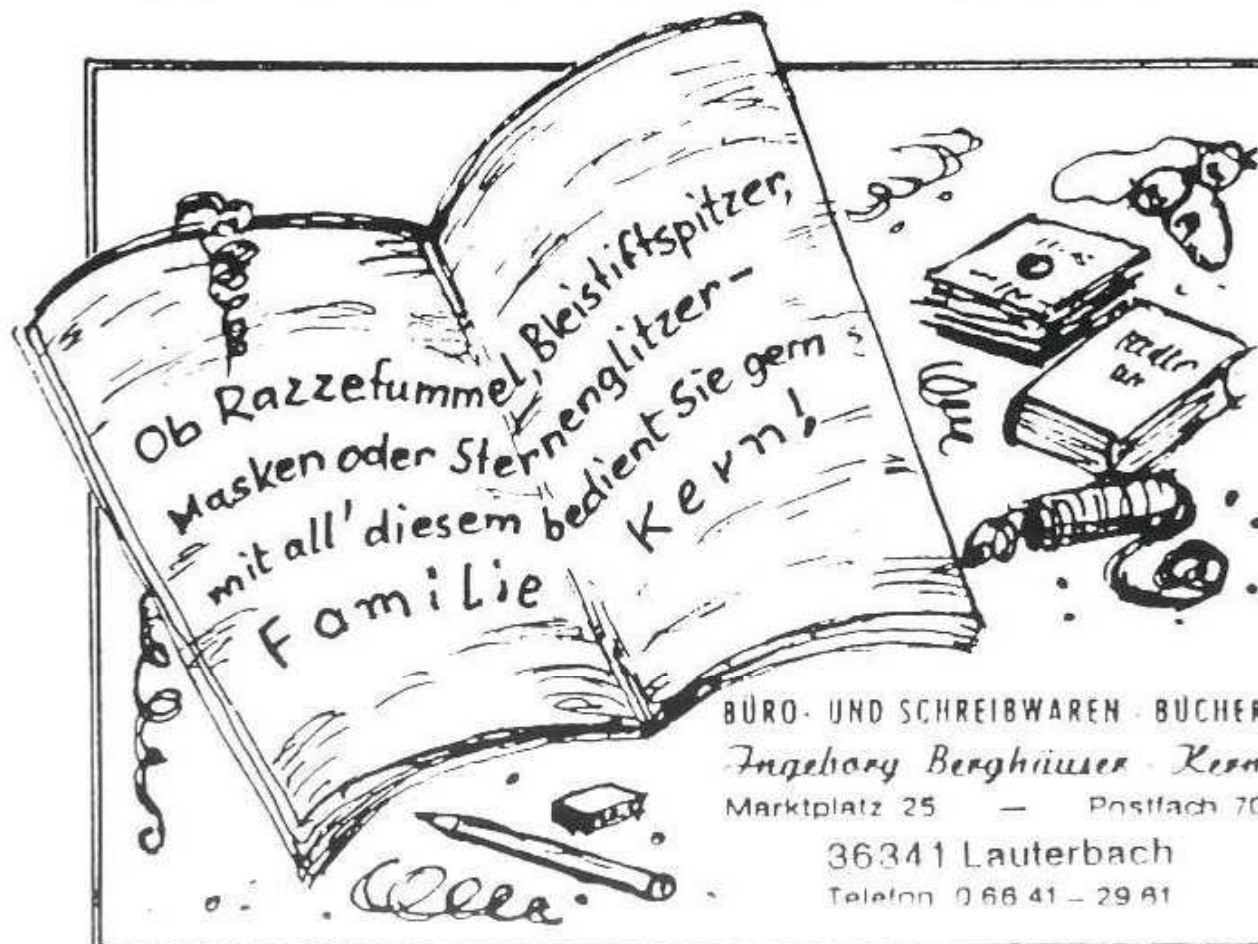 Ob Razzefummel, Bleistiftspitzer,
Masken oder Sternenglitzer-
mit all' diesem bedient Sie gern
Familie Kern!
BÜRO- UND SCHREIBWAREN - BÜCHER
Ingeborg Berghäuser - Kern
Marktplatz 25 — Postfach 70
36341 Lauterbach
Telefon 0 66 41 – 29 61